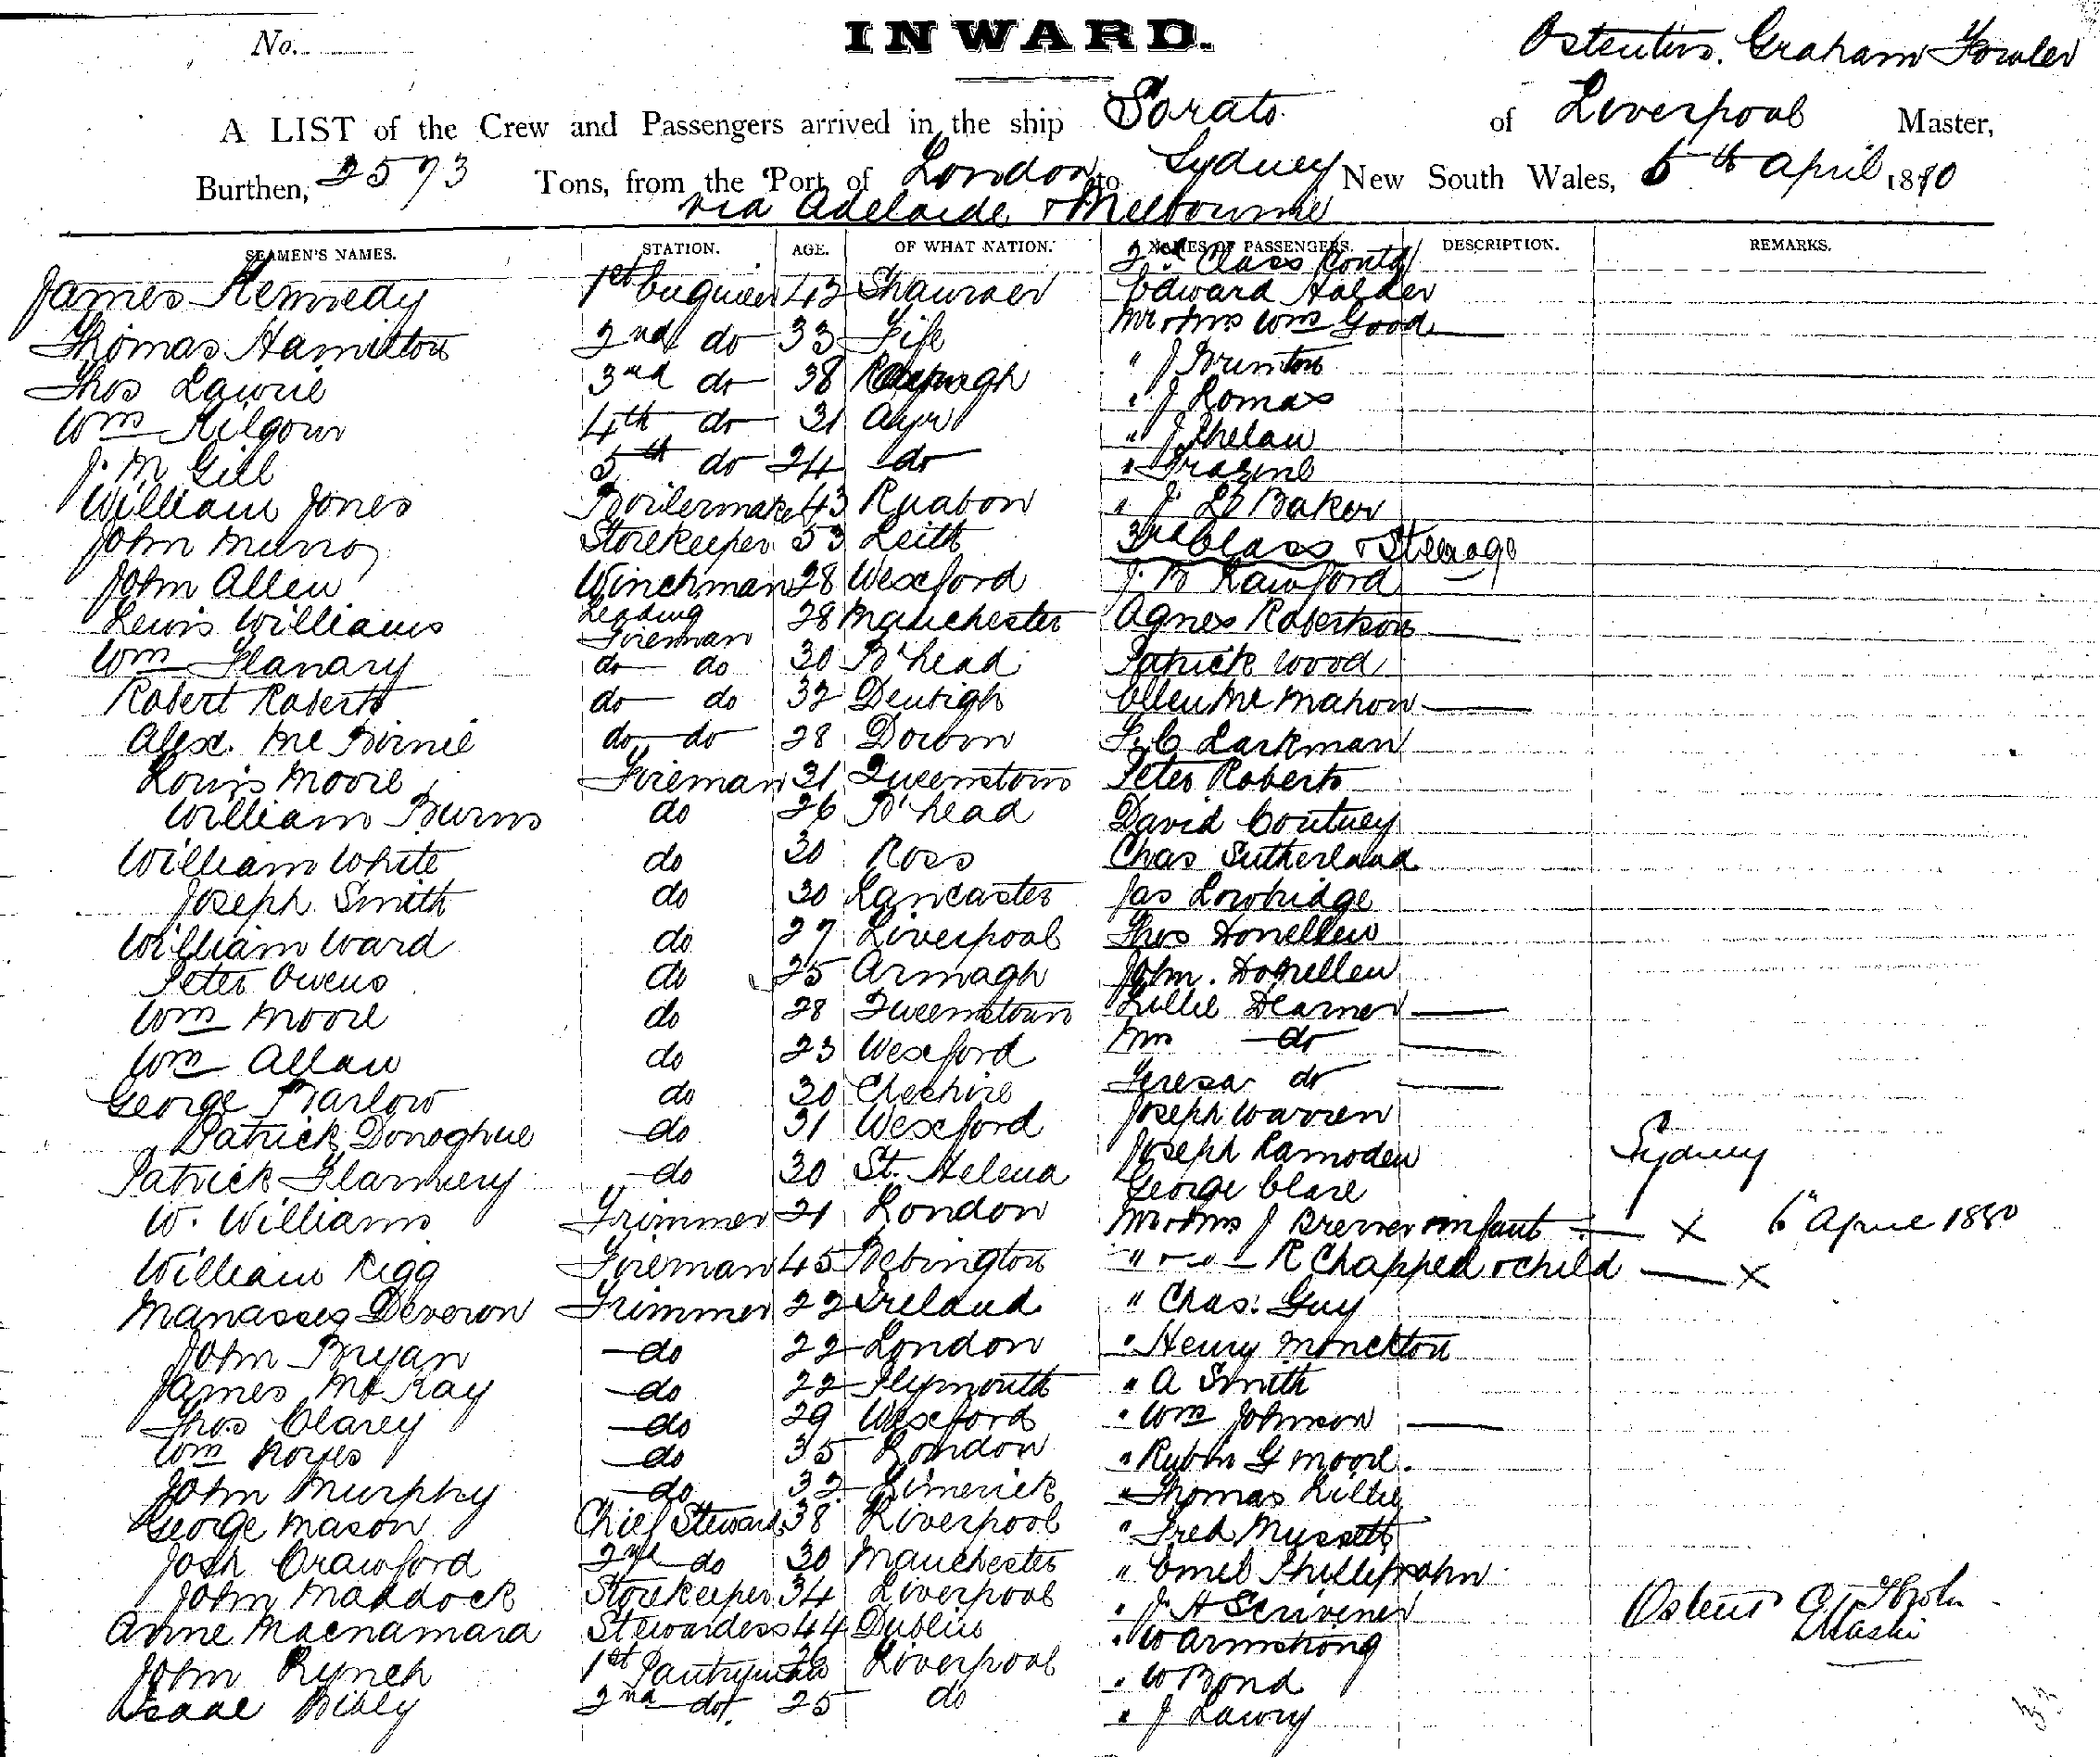 No.
INWARD.
Ostentivs. Graham Fowler
A LIST of the Crew and Passengers arrived in the ship Sorata of Liverpool Master,
Burthen, 2573 Tons, from the Port of London to Sydney New South Wales, 6th April 1880
via Adelaide & Melbourne
SEAMEN'S NAMES. STATION. AGE. OF WHAT NATION. NAMES OF PASSENGERS. DESCRIPTION. REMARKS.
2nd Class Contd
James Kennedy 1st Engineer 43 Edward Halder
Thomas Hamilton 2nd do 33 Fife Mr & Mrs Wm Good
Thos Lawrie 3rd do 38 " J Brunton
Wm Kilgour 4th do 31 Ayr " J Lomax
J. M Gill 5th do 24 do " J Phelan
William Jones Boilermaker 43 Ruabon "
John Munro Storekeeper 53 Leith " J. Le Baker
3rd Class & Steerage
John Allen Winchman 28 Wexford J. B Rawford
Lewis Williams Leading Fireman 28 Manchester Agnes Robertson
Wm Flanary do do 30 B'head Patrick Wood
Robert Roberts do do 32 Denbigh Ellen Mc Mahon
Alex. Mc Birnie do do 28 Down F. C Larkman
Louis Moore Fireman 31 Queenstown Peter Roberts
William Burns do 26 B'head David Coutney
William White do 30 Ross Chas Sutherland
Joseph Smith do 30 Lancaster Jas Lowbridge
William Ward do 27 Liverpool Thos Donellen
Peter Owens do 25 Armagh John. Donellen
Wm Moore do 28 Queenstown Lillie Dearner
Wm Allan do 23 Wexford Mrs do
George Barlow do 30 Cheshire Teresa do
Patrick Donoghue do 31 Wexford Joseph Warren
Patrick Flannery do 30 St. Helena Joseph Ramsden Sydney
George Clare
W. Williams Trimmer 21 London Mr & Mrs J Brewer & infant x 6" April 1880
William Rigg Fireman 45 Bebington " & " R Chappel & child x
Manasses Deveron Trimmer 22 Ireland " Chas. Guy
John Bryan do 22 London " Henry Monckton
James McKay do 22 Plymouth " A Smith
Thos Clarey do 29 Wexford " Wm Johnson
Wm Noyes do 35 London " Rubin G Moore.
John Murphy do 32 Limerick " Thomas Lillie
George Mason Chief Steward 38 Liverpool " Fred Mussett
Josh Crawford 2nd do 30 Manchester " Emel
John Maddock Storekeeper 34 Liverpool " J. H Scrivener
Anne Macnamara Stewardess 44 Dublin " W Armstrong
John Lynch 1st Pantryman Liverpool " W Bond
Isaac Bibby 2nd do 25 do " J Lawry